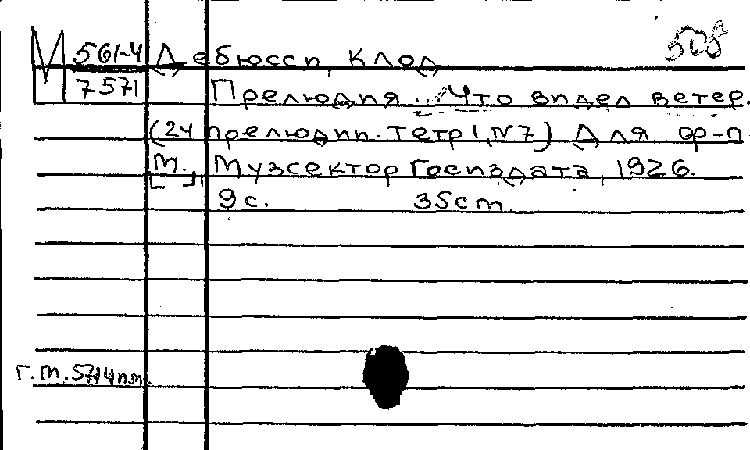 508
М 561-4 Дебюсси, Клод
7571 Прелюдия... Что видел ветер.
(24 прелюдии. Тетр 1, N7) Для ф-п
[М.], Музсектор Госиздата, 1926.
9 с. 35 см.
г. м. 5714